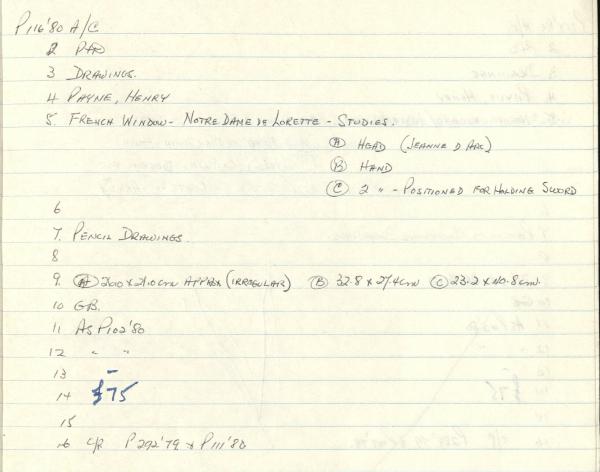 P116'80 A/C
2 P+D
3 DRAWINGS.
4 PAYNE, HENRY
5. FRENCH WINDOW - NOTRE DAME DE LORETTE - STUDIES.
(A) HEAD (JEANNE D ARC)
(B) HAND
(C) 2 " - POSITIONED FOR HOLDING SWORD
6
7. PENCIL DRAWINGS.
8
9. (A) x 21.0cm APPROX (IRREGULAR) (B) 32.8 x 27.4cm (C) 23.2 x cm.
10 GB.
11 AS P102'80
12 " "
13 -
14 £75
15
16 C/R P292'79 + P111'80